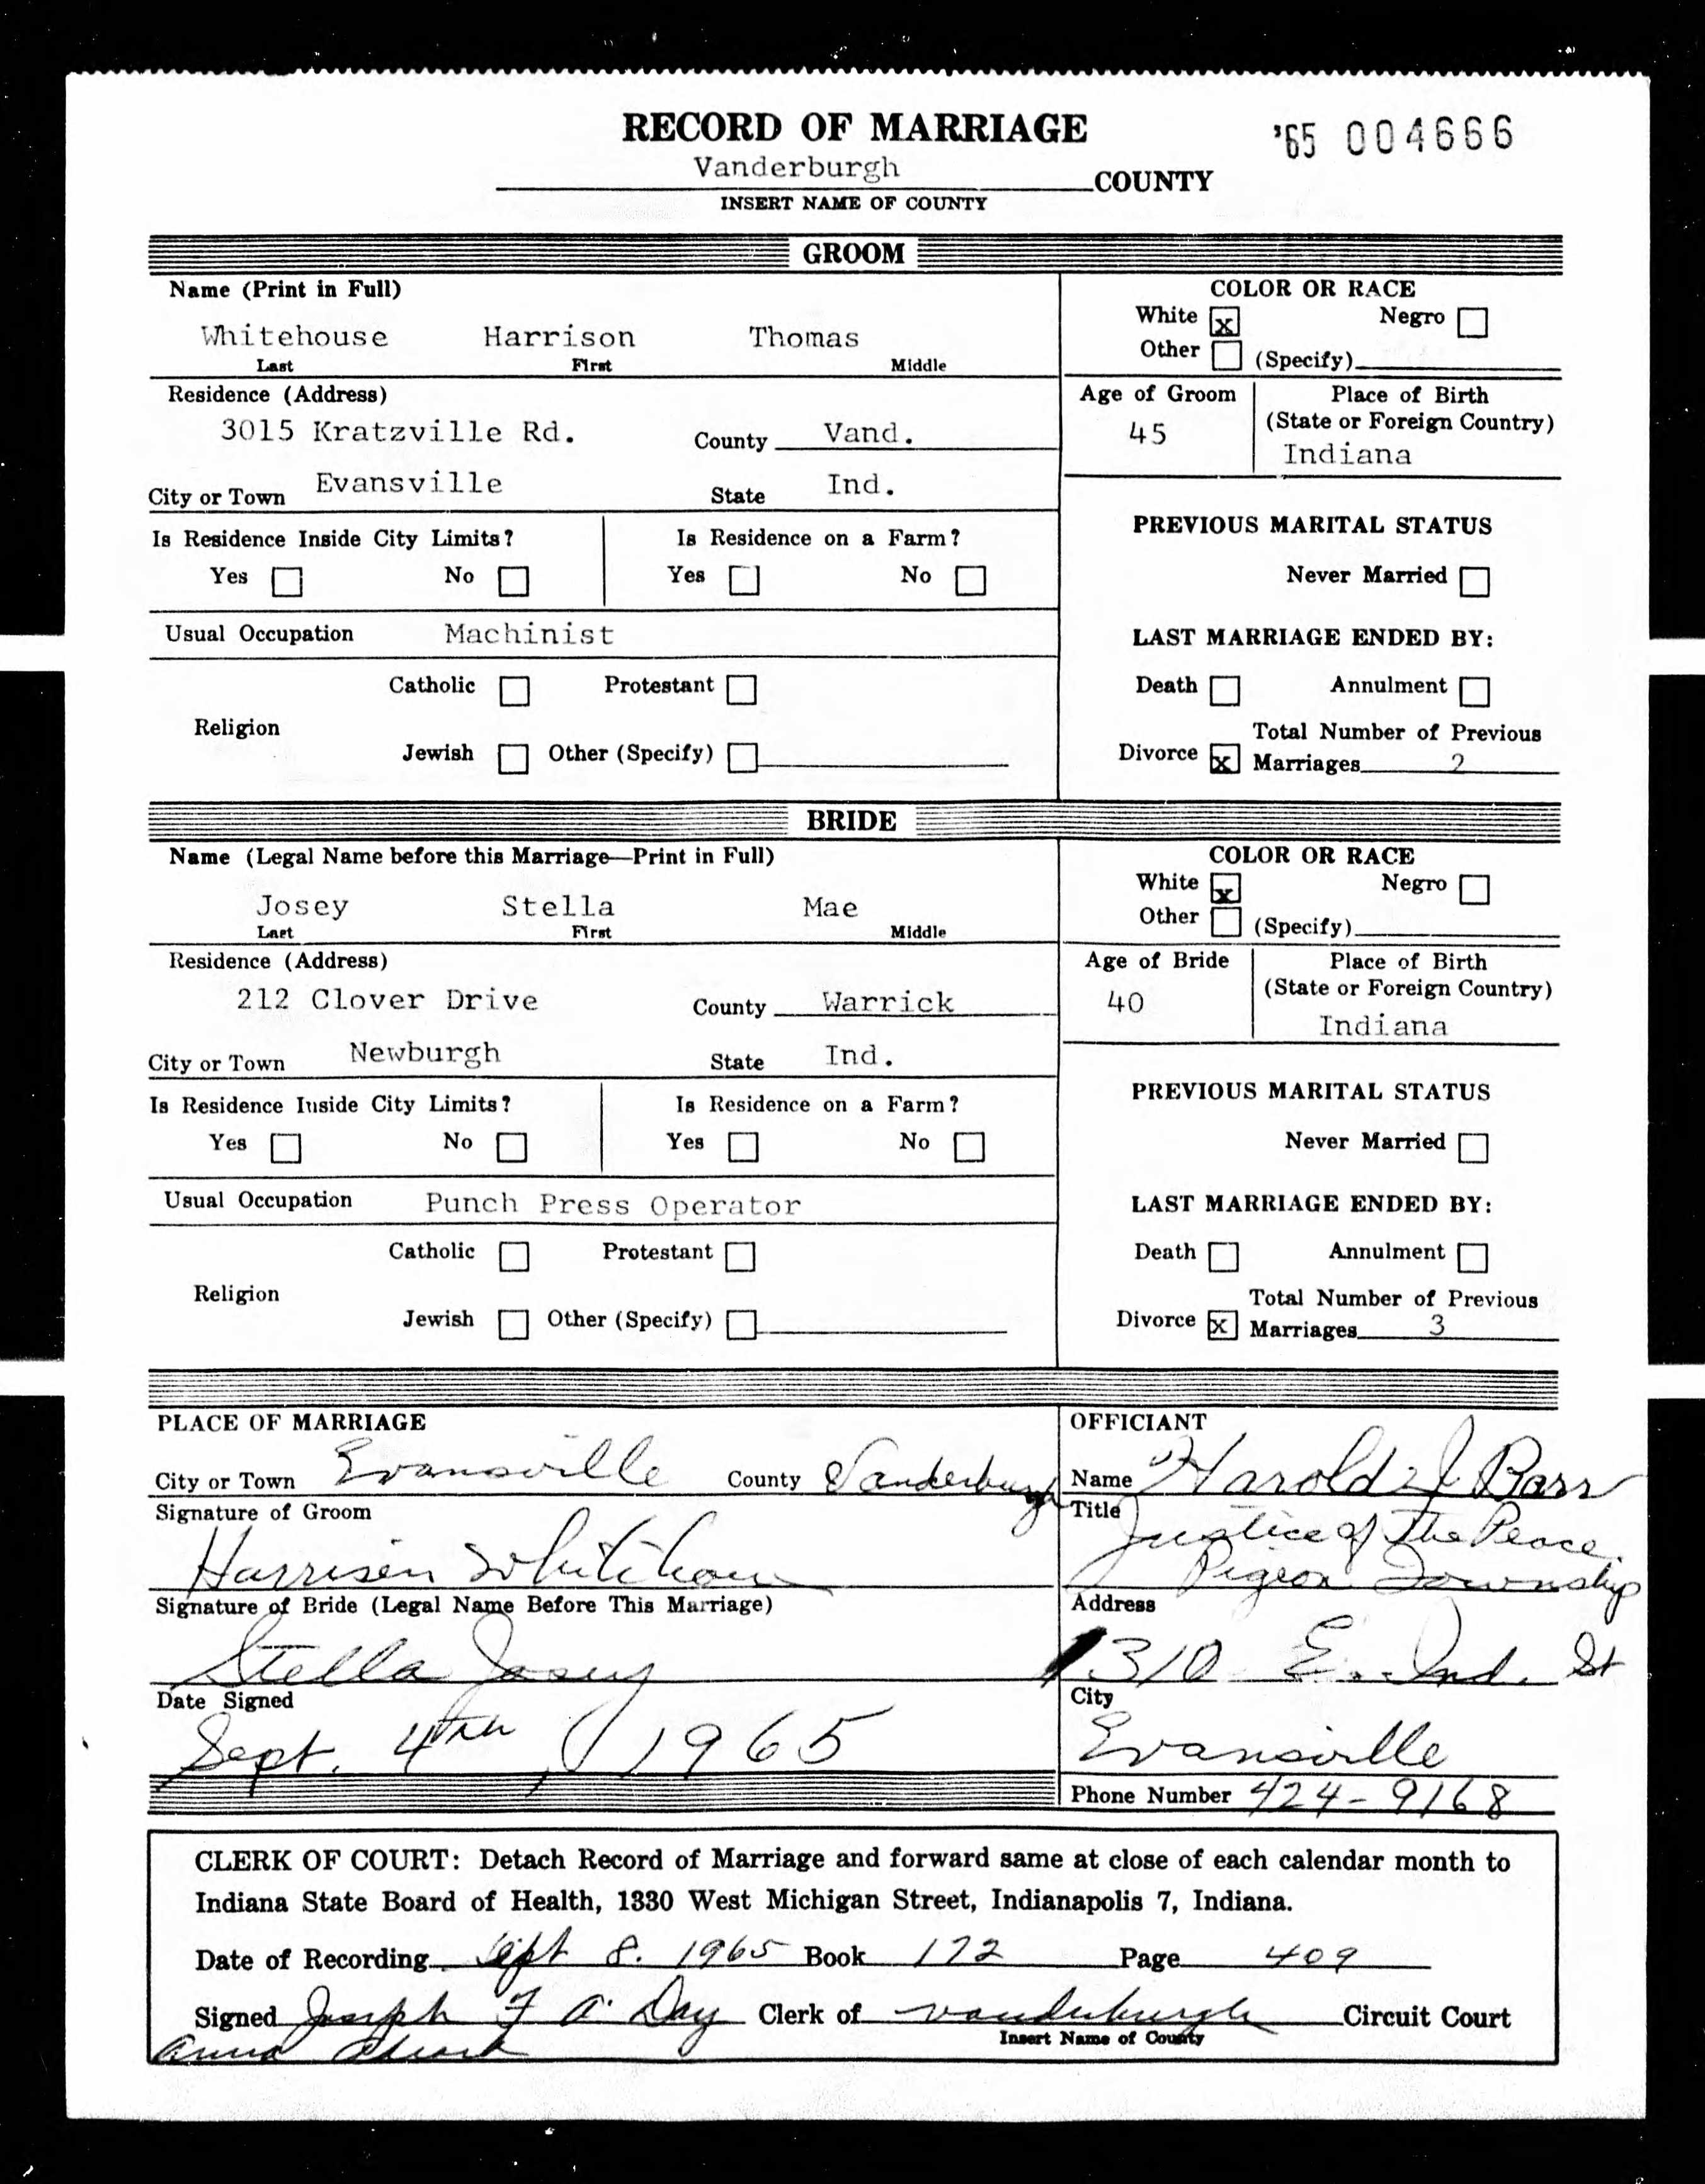 RECORD OF MARRIAGE
'65 004666
Vanderburgh COUNTY
INSERT NAME OF COUNTY
GROOM
Name (Print in Full)
Whitehouse Harrison Thomas
Last First Middle
COLOR OR RACE
White x Negro
Other (Specify)
Residence (Address)
3015 Kratzville Rd. County Vand.
City or Town Evansville State Ind.
Age of Groom
45
Place of Birth
(State or Foreign Country)
Indiana
Is Residence Inside City Limits?
Yes No
Is Residence on a Farm?
Yes No
PREVIOUS MARITAL STATUS
Never Married
Usual Occupation Machinist
LAST MARRIAGE ENDED BY:
Catholic Protestant
Religion
Jewish Other (Specify)
Death Annulment
Total Number of Previous
Divorce x Marriages 2
BRIDE
Name (Legal Name before this Marriage—Print in Full)
Josey Stella Mae
Last First Middle
COLOR OR RACE
White x Negro
Other (Specify)
Residence (Address)
212 Clover Drive County Warrick
City or Town Newburgh State Ind.
Age of Bride
40
Place of Birth
(State or Foreign Country)
Indiana
Is Residence Inside City Limits?
Yes No
Is Residence on a Farm?
Yes No
PREVIOUS MARITAL STATUS
Never Married
Usual Occupation Punch Press Operator
LAST MARRIAGE ENDED BY:
Catholic Protestant
Religion
Jewish Other (Specify)
Death Annulment
Total Number of Previous
Divorce x Marriages 3
PLACE OF MARRIAGE
City or Town Evansville County Vanderburgh
Signature of Groom
Harrison Whitehouse
Signature of Bride (Legal Name Before This Marriage)
Stella Josey
Date Signed
Sept. 4th, 1965
OFFICIANT
Name Harold J Barr
Title Justice of The Peace
Pigeon Township
Address
310 E. Ind. St
City
Evansville
Phone Number 424-9168
CLERK OF COURT: Detach Record of Marriage and forward same at close of each calendar month to
Indiana State Board of Health, 1330 West Michigan Street, Indianapolis 7, Indiana.
Date of Recording Sept 8. 1965 Book 172 Page 409
Signed Joseph F O' Day Clerk of Vanderburgh Circuit Court
Insert Name of County
Anna